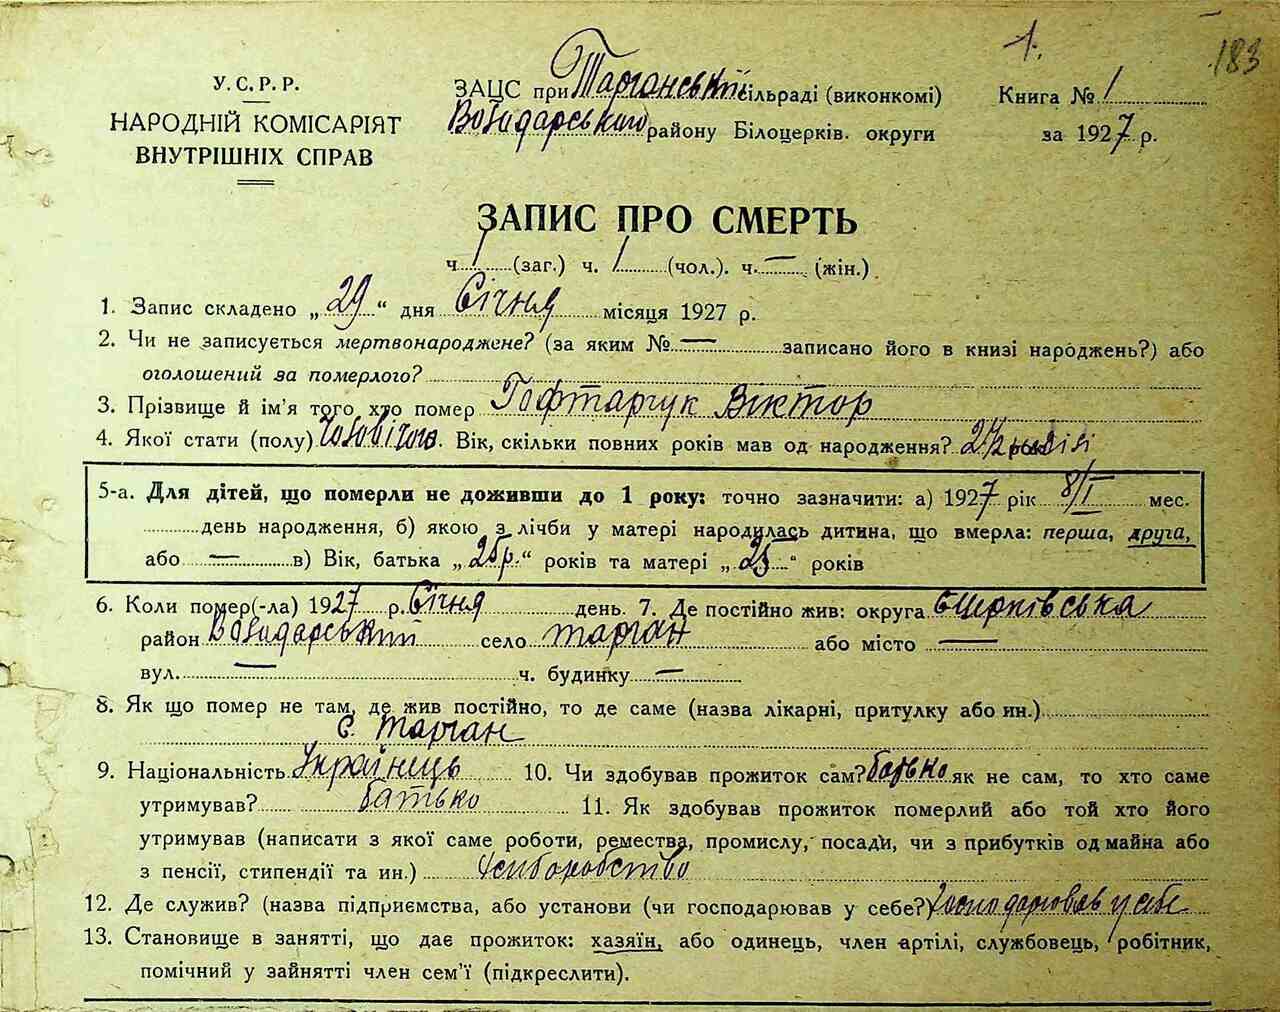 1.
183
У.С.Р.Р.
НАРОДНІЙ КОМІСАРІЯТ
ВНУТРІШНІХ СПРАВ
ЗАЦС при Тарганській сільраді (виконкомі)
Володарського району Білоцерків. округи
Книга № 1
за 1927 р.
ЗАПИС ПРО СМЕРТЬ
ч. 1 (заг.) ч. 1 (чол.). ч. — (жін.)
1. Запис складено „29“ дня Січня місяця 1927 р.
2. Чи не записується мертвонароджене? (за яким № — записано його в книзі народжень?) або
оголошений за померлого?
3. Прізвище й ім'я того, хто помер Гофтарчук Віктор
4. Якої стати (полу) чоловічого. Вік, скільки повних років мав од народження?
5-а. Для дітей, що померли не доживши до 1 року: точно зазначити: а) 1927 рік 8/I мес.
день народження, б) якою з лічби у матері народилась дитина, що вмерла: перша, друга,
або — в) Вік, батька „25р.“ років та матері „25“ років
6. Коли помер(-ла) 1927 р. Січня день. 7. Де постійно жив: округа Б Церківська
район Володарський село Тарган або місто —
вул. — ч. будинку —
8. Як що помер не там, де жив постійно, то де саме (назва лікарні, притулку або ин.)
с. Тарган
9. Національність Українець 10. Чи здобував прожиток сам? батько як не сам, то хто саме
утримував? батько 11. Як здобував прожиток померлий або той хто його
утримував (написати з якої саме роботи, ремества, промислу, посади, чи з прибутків од майна або
з пенсії, стипендії та ин.) хліборобство
12. Де служив? (назва підприємства, або установи (чи господарював у себе?) Господарював у себе
13. Становище в занятті, що дає прожиток: хазяїн, або одинець, член артілі, службовець, робітник,
помічний у зайнятті член сем'ї (підкреслити).